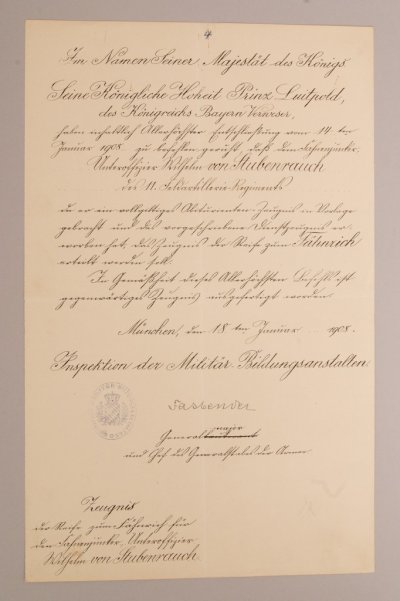 4
Im Namen Seiner Majestät des Königs
Seine Königliche Hoheit Prinz Luitpold,
des Königreichs Bayern Verweser,
haben inhaltlich Allerhöchster Entschließung vom 14 ten
Januar 1908 zu befehlen geruht, daß dem Fahnenjunker,
Unteroffizier Wilhelm von Stubenrauch
des 11. Feldartillerie-Regiments
da er ein vollgültiges Abiturienten-Zeugnis in Vorlage
gebracht und das vorgeschriebene Dienstzeugnis er-
worben hat, das Zeugnis der Reife zum Fähnrich
erteilt werden soll.
In Gemäßheit dieses Allerhöchsten Befehls ist
gegenwärtiges Zeugnis ausgefertigt worden.
München, den 18 ten Januar 1908.
Inspektion der Militär-Bildungsanstalten
Fasbender
major
Generalleutnant
und Chef des Generalstabes der Armee.
Zeugnis
der Reife zum Fähnrich für
den Fahnenjunker, Unteroffizier
Wilhelm von Stubenrauch